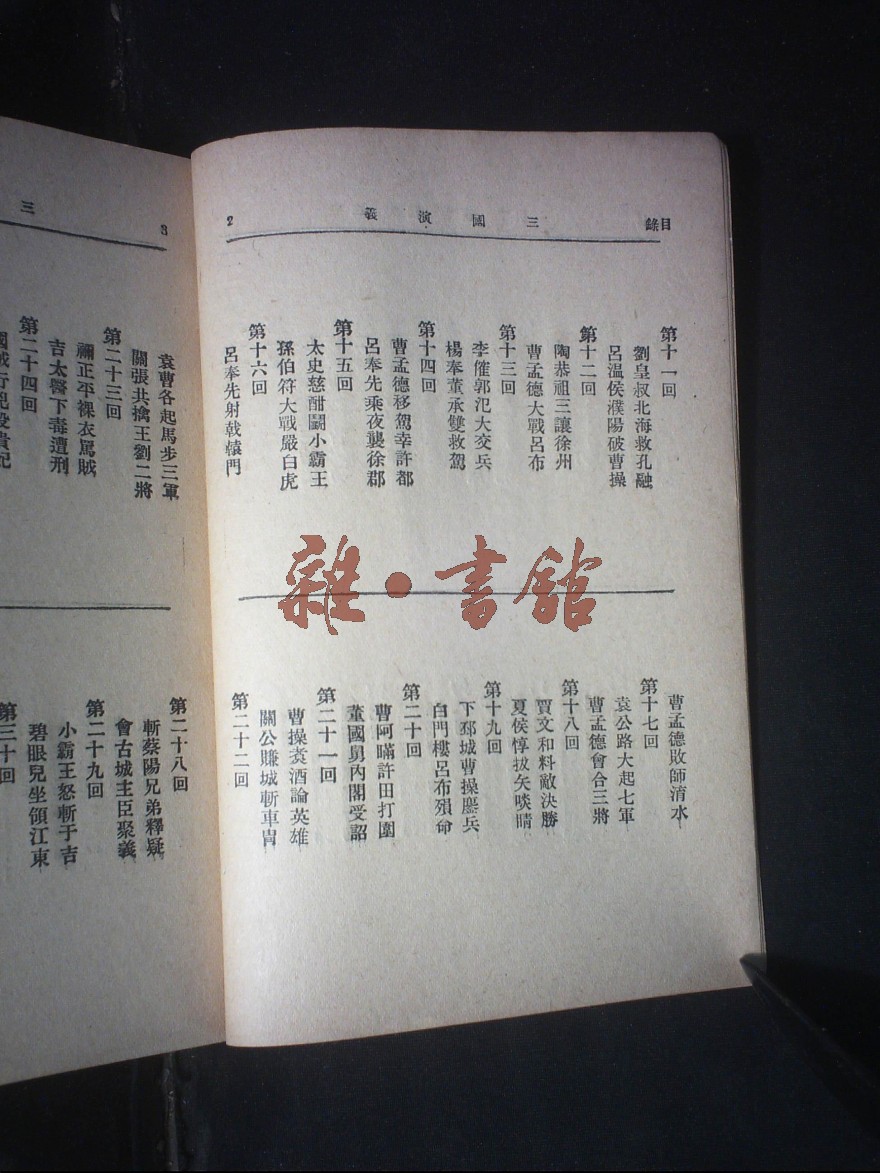 目錄
三國演義
2
第十一回
劉皇叔北海救孔融
呂溫侯濮陽破曹操
第十二回
陶恭祖三讓徐州
曹孟德大戰呂布
第十三回
李傕郭汜大交兵
楊奉董承雙救駕
第十四回
曹孟德移駕幸許都
呂奉先乘夜襲徐郡
第十五回
太史慈酣鬭小霸王
孫伯符大戰嚴白虎
第十六回
呂奉先射戟轅門
曹孟德敗師淯水
第十七回
袁公路大起七軍
曹孟德會合三將
第十八回
賈文和料敵決勝
夏侯惇拔矢啖睛
第十九回
下邳城曹操鏖兵
白門樓呂布殞命
第二十回
曹阿瞞許田打圍
董國舅內閣受詔
第二十一回
曹操煑酒論英雄
關公賺城斬車胄
第二十二回
3
三
袁曹各起馬步三軍
關張共擒王劉二將
第二十三回
禰正平裸衣罵賊
吉太醫下毒遭刑
第二十四回
國賊行兇殺貴妃
第二十八回
斬蔡陽兄弟釋疑
會古城主臣聚義
第二十九回
小霸王怒斬于吉
碧眼兒坐領江東
第三十回
雜·書館